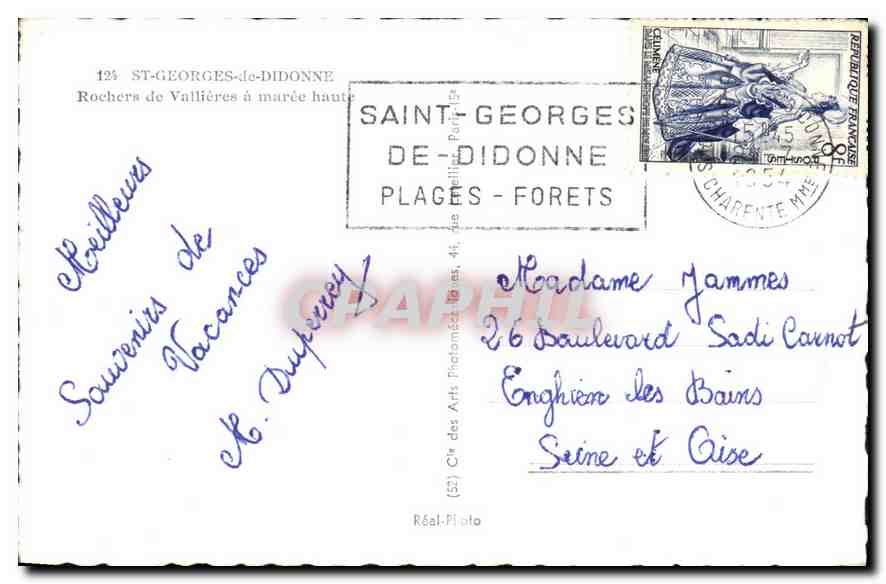 124 ST-GEORGES-de-DIDONNE
Rochers de Vallières à marée haute
SAINT-GEORGES
DE-DIDONNE
PLAGES - FORETS
RÉPUBLIQUE FRANÇAISE
8F
POSTES
CÉLIMÈNE
15H45
1954
CHARENTE MME
Meilleurs
Souvenirs de
Vacances
M. Duperrey
(52) Cie des Arts Photomécaniques, 44, rue Letellier, Paris-15e
Madame Jammes
26 Boulevard Sadi Carnot
Enghien les Bains
Seine et Oise
Réal-Photo
CPAPHIL